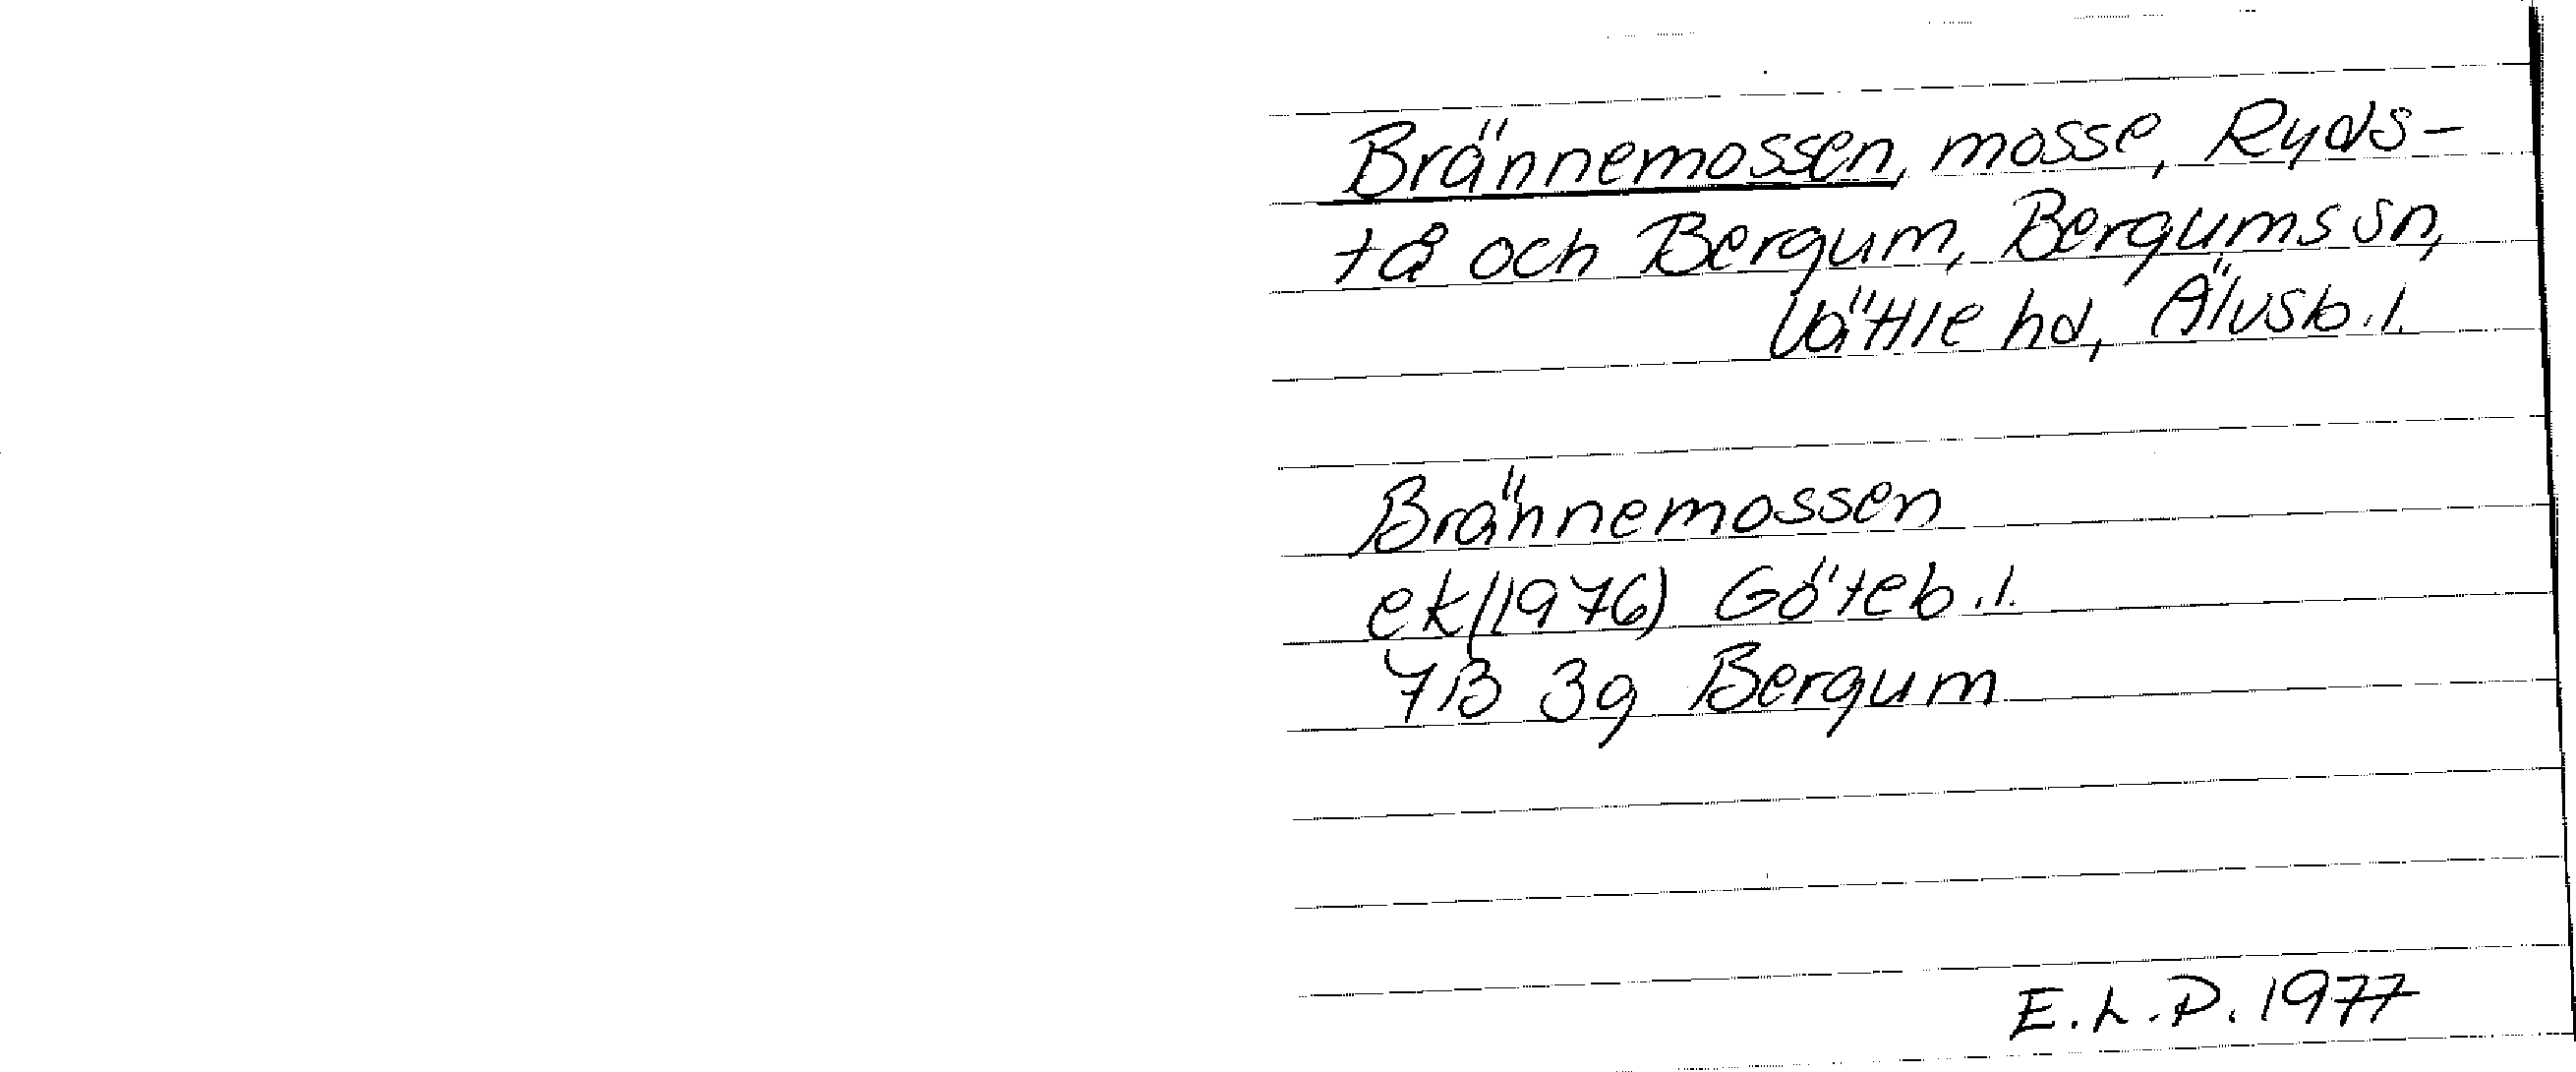 Brännemossen, mosse, Ryds-
tå och Bergum, Bergums sn,
Vättle hd, Älvsb.l.
Brännemossen
ek (1976) Göteb.l.
7B 3g Bergum
E.L.P. 1977